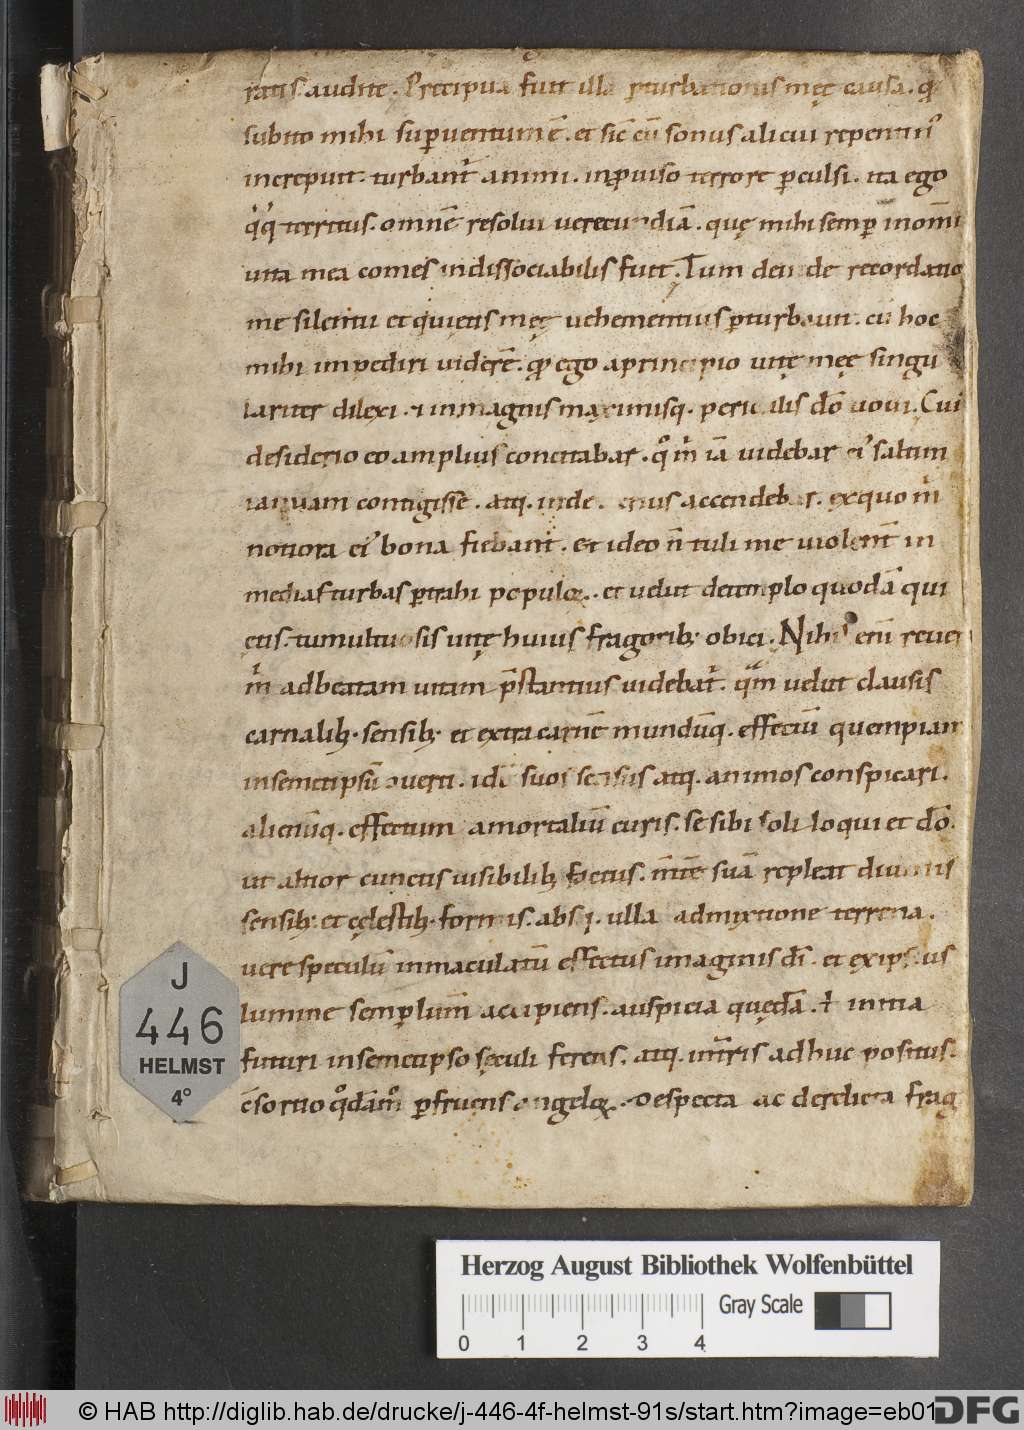 ratis. audite. Precipua fuit illa pturbationis meę causa. qđ
subito mihi supuentum ē. et sic cū sonus alicui repentin᾿
increpuit. turbant᾿ animi. inprouiso terrore pculsi. ita ego
q̊q territus. omnē resolui uerecundiā. quę mihi semp in omni
uita mea comes indissociabilis fuit. Tum deinde recordatio
me silentii et quietis meę uehementius pturbauit. cū hoc
mihi impediri uiderē. qđ ego a principio uitę meę singu
lariter dilexi. & in magnis maximisq. periculis dō uoui. Cui
desiderio eo amplius concitabar. q̊ m̊ iā uidebar ei᾿ saltim
ianuam contigisse. atq. inde accendebar. ex quo m̊
notiora ei᾿ bona fiebant. et ideo ñ tuli me uiolent̄ in
medias turbas ptrahi populoꝝ. et uelut de templo quodā qui
etis. tumultuosis uitę huius fragorib; obici. Nihil enī reuera
m̊ ad beatam uitam p̄stantius uidebat᾿. q̄m uelut clausis
carnalib; sensib; et extra carnē mundūq. effectū quempiam
in semetipsū uerti. suos sensus atq. animos conspicari.
alienūq. effectum a mortaliū curis. se sibi soli loqui et dō.
ut altior cunctis uisibilib; factus. m̄tē suā repleat diuinis
sensib; et cęlestib; formis. absq. ulla admixtione terrena.
uere speculū inmaculatū effectus imaginis dī. et ex ipsius
lumine semp lum̄ accipiens. auspicia quędā. & in uia
futuri in semetipso sęculi ferens. atq. in t̄ris adhuc positus.
ꝯsortio q̊dam̊ pfruens angeloꝝ. Despecta ac derelicta frag
J
446
HELMST
4°
Herzog August Bibliothek Wolfenbüttel
Gray Scale
0 1 2 3 4
© HAB http://diglib.hab.de/drucke/j-446-4f-helmst-91s/start.htm?image=eb01
DFG